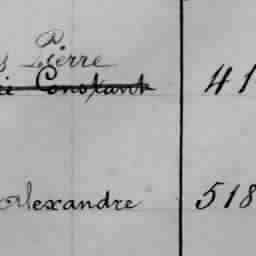 Pierre
Constant 41
Alexandre 518